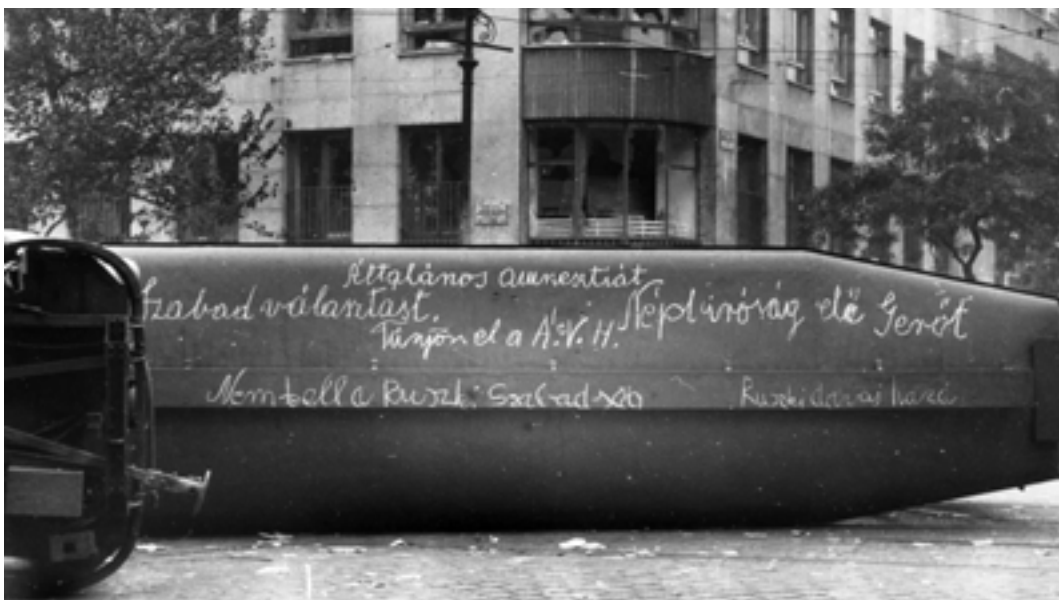 Általános amnesztiát
Szabad választást.
Tünjön el a Á.V.H.
Népbíróság elé Gerőt
Nem kell a Ruszki Szabadság
Ruszki davaj haza